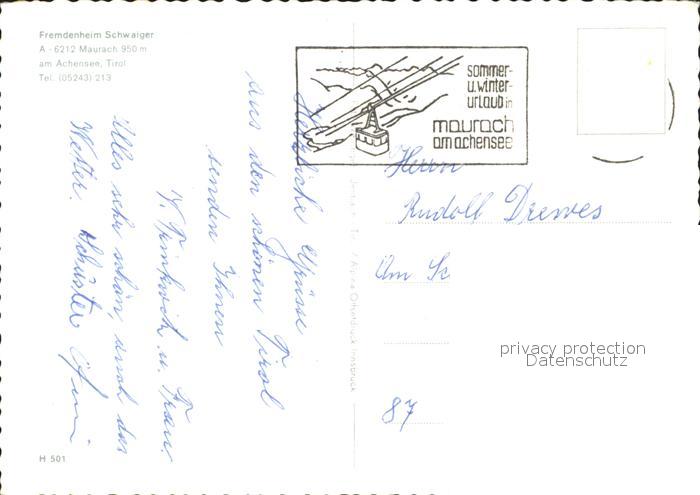 Fremdenheim Schwaiger
A - 6212 Maurach 950 m
am Achensee, Tirol
Tel. (05243) 213
sommer-
u. winter-
urlaub in
maurach
am achensee
Herzliche Grüsse
aus den schönen Tirol
senden Ihnen
u. Frau.
Alles sehr schön, auch das
Wetter. Schuster
Herrn
Rudolf Drewes
Am Sc
87
privacy protection
Datenschutz
H 501